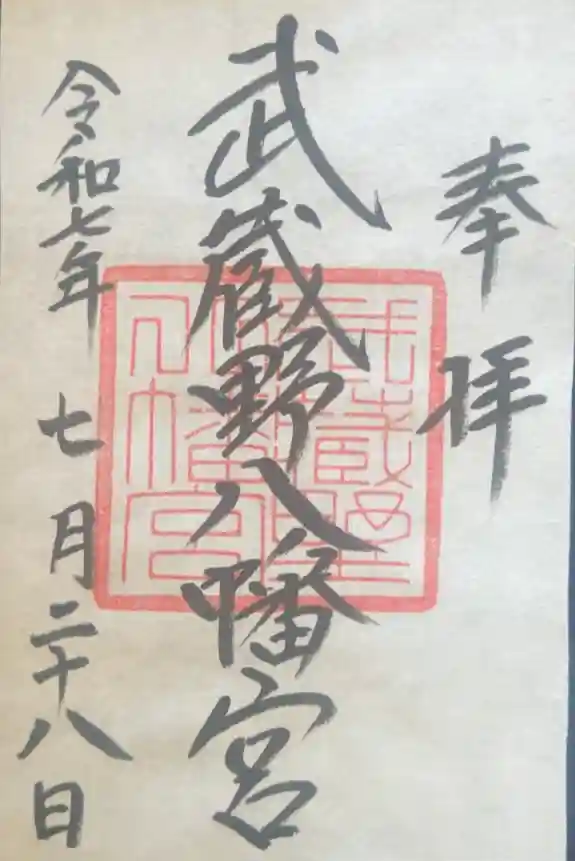 奉拝
武蔵野八幡宮
武蔵野八幡宮
令和七年 七月二十八日